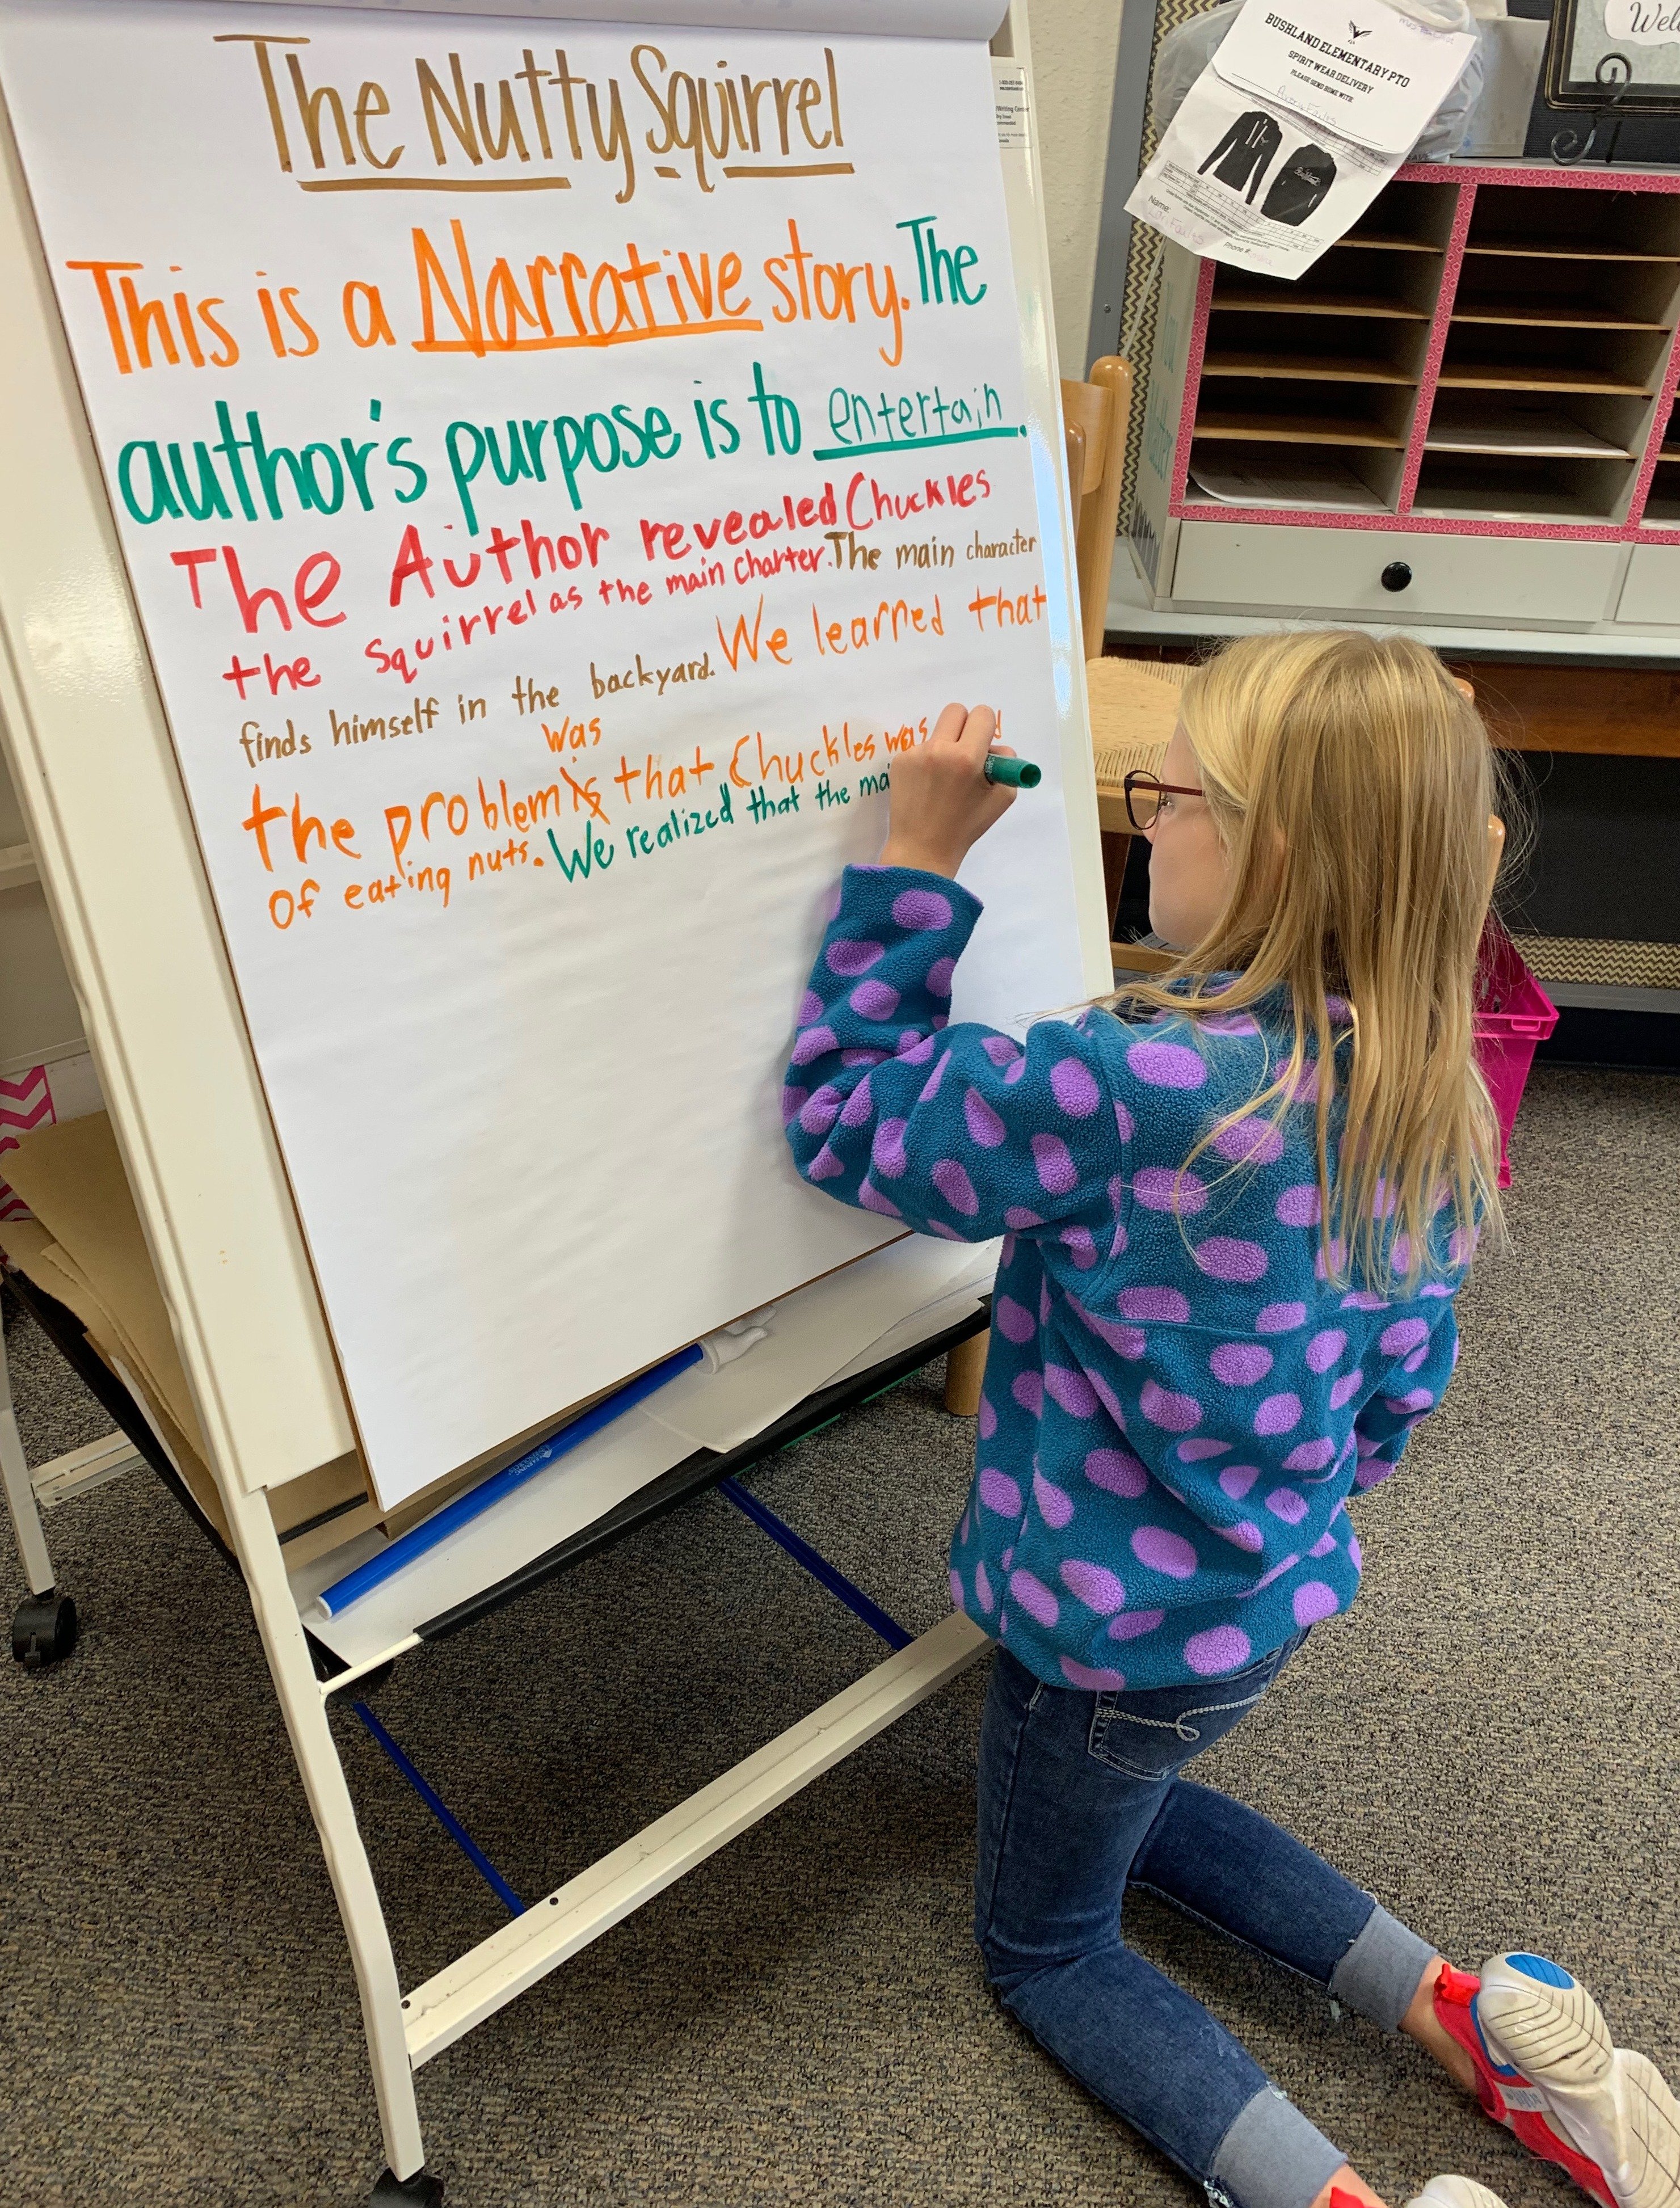 The Nutty Squirrel
This is a Narrative story. The
author's purpose is to entertain.
The Author revealed Chuckles
the squirrel as the main charter. The main character
finds himself in the backyard. We learned that
was
the problem is that Chuckles was
of eating nuts. We realized that the
BUSHLAND ELEMENTARY PTO
SPIRIT WEAR DELIVERY
PLEASE SEND HOME WITH:
Name:
Phone #: